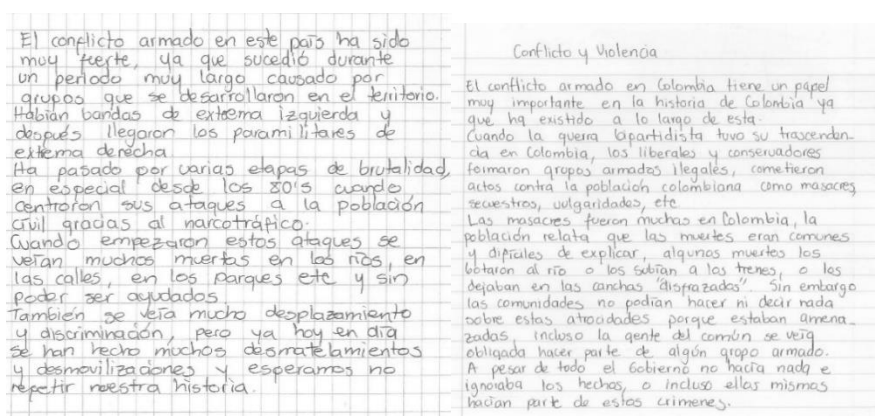 El conflicto armado en este país ha sido
muy fuerte, ya que sucedió durante
un periodo muy largo causado por
grupos que se desarrollaron en el territorio.
Habian bandas de extrema izquierda y
después llegaron los paramilitares de
extrema derecha
Ha pasado por varias etapas de brutalidad,
en especial desde los 80's cuando
centraron sus ataques a la población
civil gracias al narcotráfico.
Cuando empezaron estos ataques se
veían muchos muertos en los ríos, en
las calles, en los parques etc y sin
poder ser ayudados
También se veía mucho desplazamiento
y discriminación, pero ya hoy en día
se han hecho muchos desmatelamientos
y desmovilizaciones y esperamos no
repetir nuestra historia.
Conflicto y Violencia
El conflicto armado en Colombia tiene un papel
muy importante en la historia de Colombia ya
que ha existido a lo largo de esta.
Cuando la guerra bipartidista tuvo su trascenden-
cia en Colombia, los liberales y conservadores
formaron grupos armados ilegales, cometieron
actos contra la población colombiana como masacres,
secuestros, vulgaridades, etc
Las masacres fueron muchas en Colombia, la
población relata que las muertes eran comunes
y difíciles de explicar, algunos muertos los
botaron al río o los subían a los trenes, o los
dejaban en las canchas "disfrazados". Sin embargo
las comunidades no podían hacer ni decir nada
sobre estas atrocidades porque estaban amena-
zadas, incluso la gente del común se veía
obligada hacer parte de algún grupo armado.
A pesar de todo el Gobierno no hacía nada e
ignoraba los hechos, o incluso ellos mismos
hacían parte de estos crimenes.